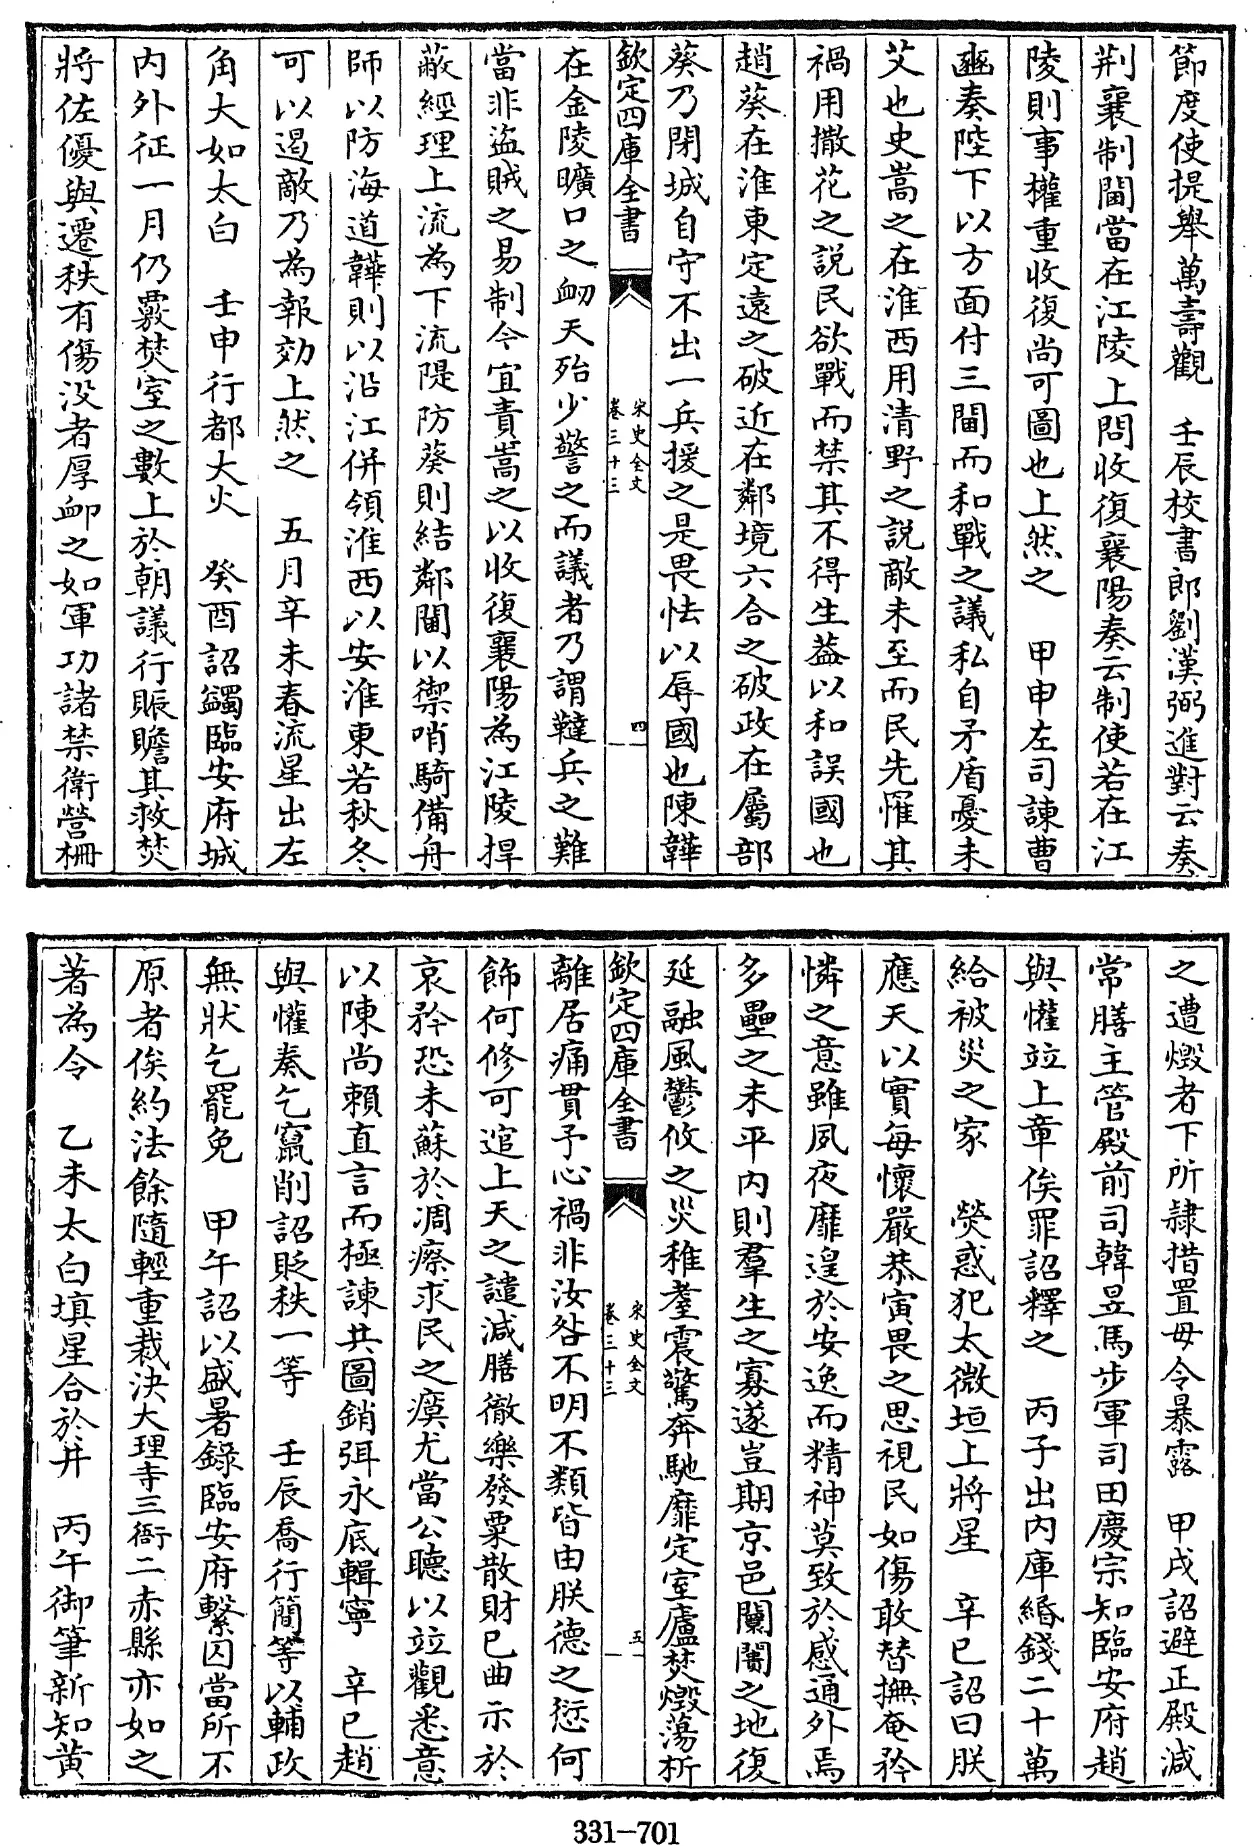 節度使提舉萬壽觀　壬辰校書郎劉漢弼進對云奏
荆襄制閫當在江陵上問收復襄陽奏云制使若在江
陵則事權重收復尚可圖也上然之　甲申左司諫曹
豳奏陛下以方面付三閫而和戰之議私自矛盾憂未
艾也史嵩之在淮西用清野之説敵未至而民先罹其
禍用撒花之説民欲戰而禁其不得生葢以和誤國也
趙葵在淮東定遠之破近在鄰境六合之破政在屬部
葵乃閉城自守不出一兵援之是畏怯以辱國也陳韡
欽定四庫全書
宋史全文
卷三十三
四
在金陵曠口之衂天殆少警之而議者乃謂韃兵之難
當非盜賊之易制今宜責嵩之以收復襄陽為江陵捍
蔽經理上流為下流隄防葵則結鄰閫以禦哨騎備舟
師以防海道韡則以沿江併領淮西以安淮東若秋冬
可以遏敵乃為報効上然之　五月辛未春流星出左
角大如太白　壬申行都大火　癸酉詔蠲臨安府城
内外征一月仍覈焚室之數上於朝議行賑贍其救焚
將佐優與遷秩有傷没者厚卹之如軍功諸禁衛營栅
之遭燬者下所隷措置毋令暴露　甲戌詔避正殿減
常膳主管殿前司韓昱馬步軍司田慶宗知臨安府趙
與懽竝上章俟罪詔釋之　丙子出内庫緡錢二十萬
給被災之家　熒惑犯太微垣上將星　辛巳詔曰朕
應天以實每懷嚴恭寅畏之思視民如傷敢替撫奄矜
憐之意雖夙夜靡遑於安逸而精神莫致於感通外焉
多壘之未平内則羣生之寡遂豈期京邑闤闠之地復
延融風鬱攸之災稚耋震驚奔馳靡定室廬焚燬蕩析
欽定四庫全書
宋史全文
卷三十三
五
離居痛貫予心禍非汝咎不明不類皆由朕德之愆何
飾何修可逭上天之譴減膳徹樂發粟散財已曲示於
哀矜恐未蘇於凋瘵求民之瘼尤當公聽以竝觀悉意
以陳尚賴直言而極諫共圖銷弭永底輯寧　辛巳趙
與懽奏乞竄削詔貶秩一等　壬辰喬行簡等以輔政
無狀乞罷免　甲午詔以盛暑錄臨安府繫囚當所不
原者俟約法餘隨輕重裁決大理寺三衙二赤縣亦如之
著為令　乙未太白填星合於井　丙午御筆新知黄
331-701